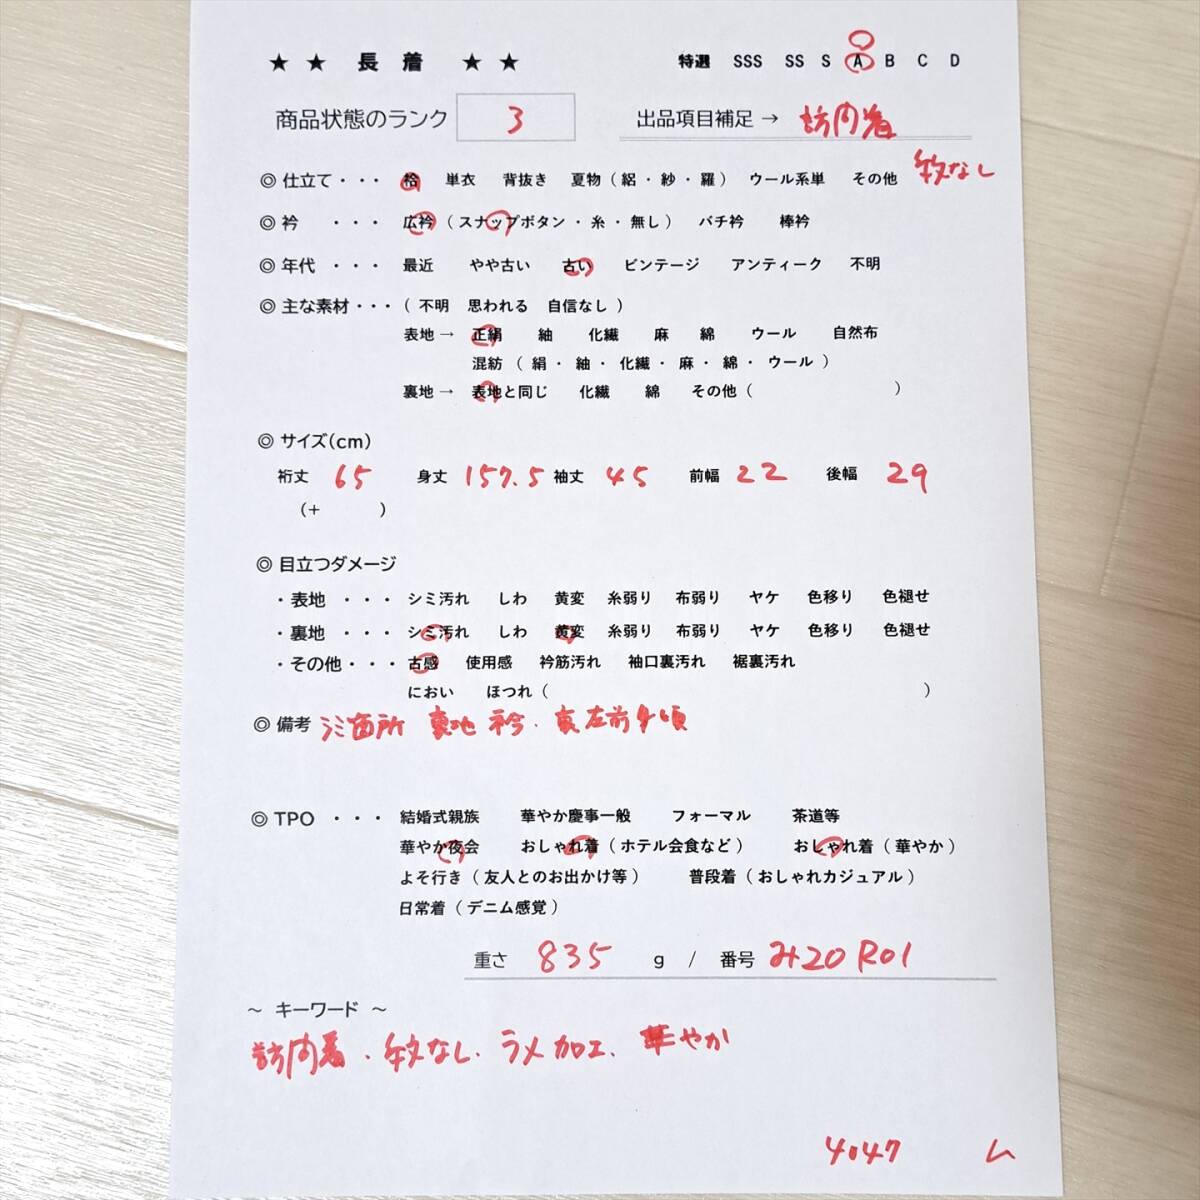 ★ ★ 長 着 ★ ★ 特選 SSS SS S A B C D
商品状態のランク 3 出品項目補足 → 訪問着
紋なし
◎ 仕立て・・・ 袷 単衣 背抜き 夏物（絽・紗・羅） ウール系単 その他
◎ 衿 ・・・ 広衿（スナップボタン・糸・無し） バチ衿 棒衿
◎ 年代 ・・・ 最近 やや古い 古い ビンテージ アンティーク 不明
◎ 主な素材・・・（ 不明 思われる 自信なし ）
表地 → 正絹 紬 化繊 麻 綿 ウール 自然布
混紡（ 絹・紬・化繊・麻・綿・ウール ）
裏地 → 表地と同じ 化繊 綿 その他（ ）
◎ サイズ(cm)
裄丈 65 身丈 157.5 袖丈 45 前幅 22 後幅 29
（+ ）
◎ 目立つダメージ
・表地 ・・・ シミ汚れ しわ 黄変 糸弱り 布弱り ヤケ 色移り 色褪せ
・裏地 ・・・ シミ汚れ しわ 黄変 糸弱り 布弱り ヤケ 色移り 色褪せ
・その他・・・ 古感 使用感 衿筋汚れ 袖口裏汚れ 裾裏汚れ
におい ほつれ（ ）
◎ 備考 シミ箇所 裏地 衿・裏左前身頃
◎ TPO ・・・ 結婚式親族 華やか慶事一般 フォーマル 茶道等
華やか夜会 おしゃれ着（ホテル会食など） おしゃれ着（華やか）
よそ行き（友人とのお出かけ等） 普段着（おしゃれカジュアル）
日常着（デニム感覚）
重さ 835 g / 番号 み20R01
～ キーワード ～
訪問着・紋なし・ラメ加工・華やか
4047 ム